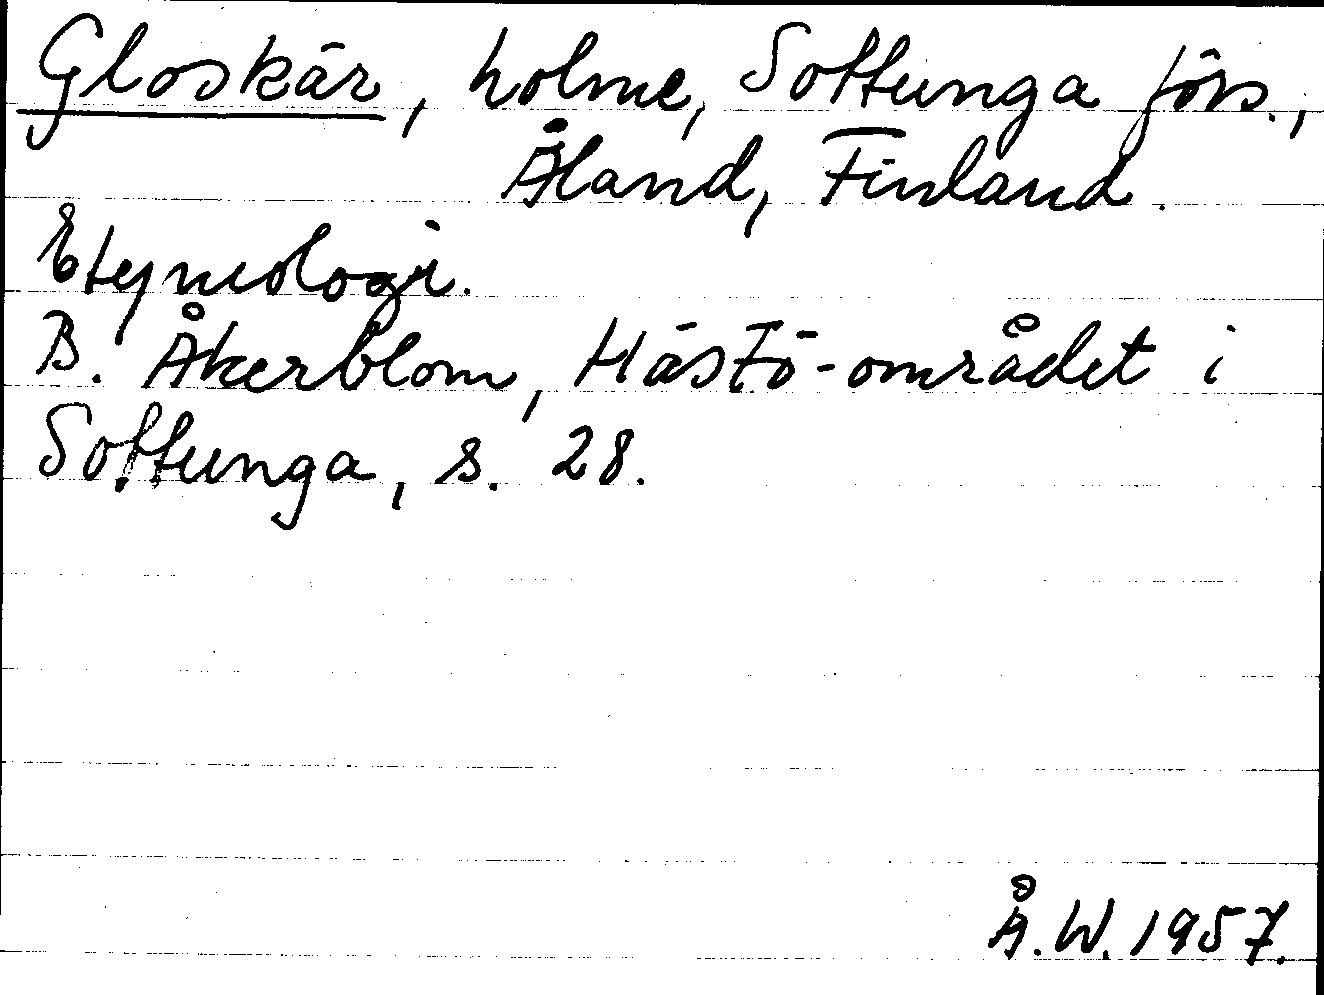 Gloskär, holme, Sottunga förs.,
Åland, Finland.
Etymologi.
B. Åkerblom, Hästö-området i
Sottunga, s. 28.
Å.W. 1957.